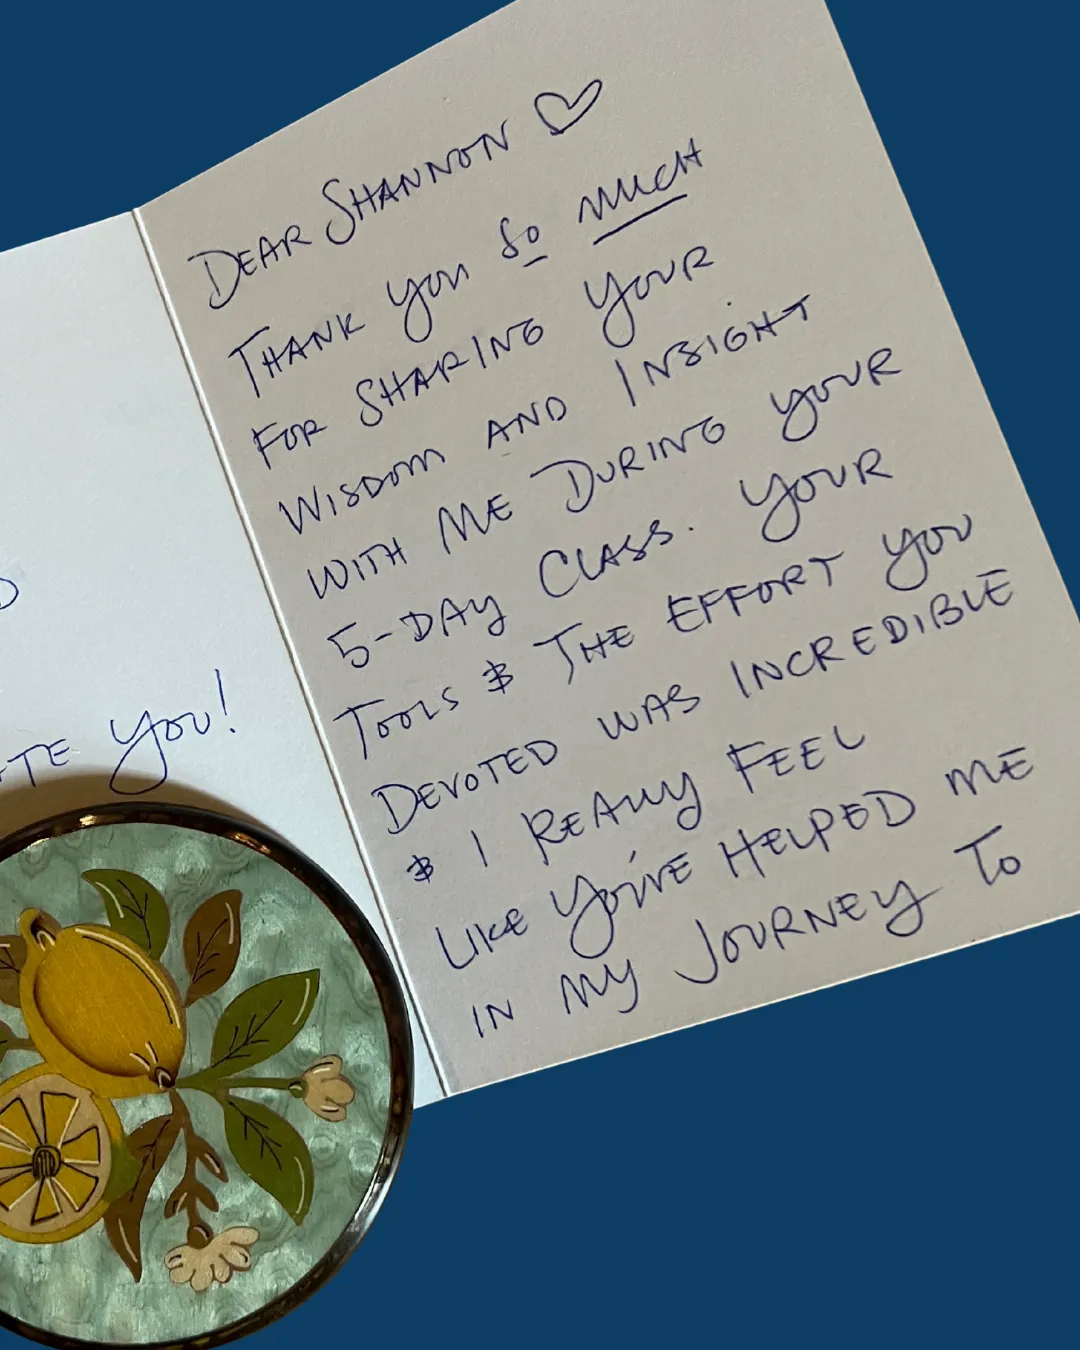 DEAR SHANNON ♡
THANK YOU SO MUCH
FOR SHARING YOUR
WISDOM AND INSIGHT
WITH ME DURING YOUR
5-DAY CLASS. YOUR
TOOLS & THE EFFORT YOU
DEVOTED WAS INCREDIBLE
& I REALLY FEEL
LIKE YOU'VE HELPED ME
IN MY JOURNEY TO
D
TE YOU!